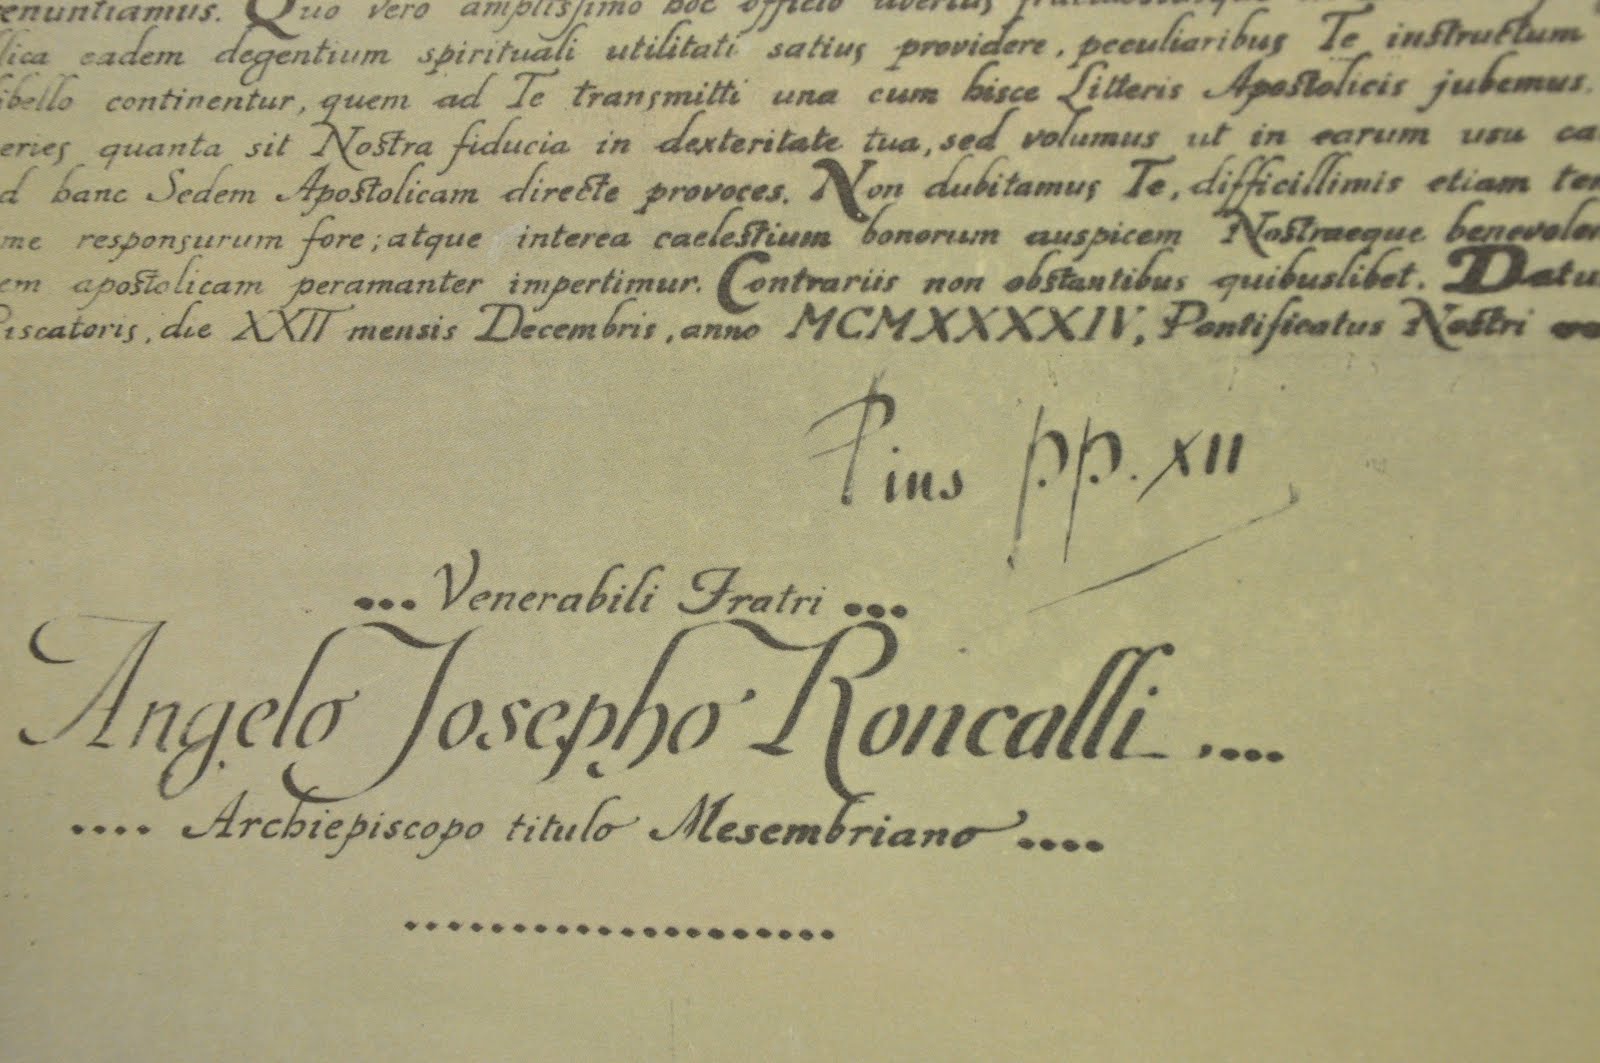 enuntiamus. Quo vero amplissimo hoc officio uberius
lica eadem degentium spirituali utilitati satius providere, peculiaribus Te instructum
ibello continentur, quem ad Te transmitti una cum hisce Litteris Apostolicis jubemus.
eries quanta sit Nostra fiducia in dexteritate tua, sed volumus ut in earum usu ca
d hanc Sedem Apostolicam directe provoces. Non dubitamus Te, difficillimis etiam tem
me responsurum fore; atque interea caelestium bonorum auspicem Nostraeque benevolen
em apostolicam peramanter impertimur. Contrariis non obstantibus quibuslibet. Datu
Piscatoris, die XXII mensis Decembris, anno MCMXXXXIV, Pontificatus Nostri
Pius pp. XII
... Venerabili Fratri ...
Angelo Josepho Roncalli ....
.... Archiepiscopo titulo Mesembriano ....
....................